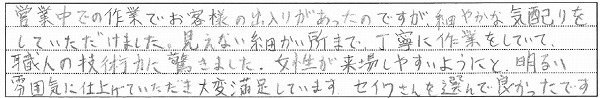 営業中での作業でお客様の出入りがあったのですが、細やかな気配りを
していただけました。見えない細かい所まで、丁寧に作業をしていて、
職人の技術力に驚きました。女性が来場しやすいようにと、明るい
雰囲気に仕上げていただき大変満足しています。セイワさんを選んで良かったです